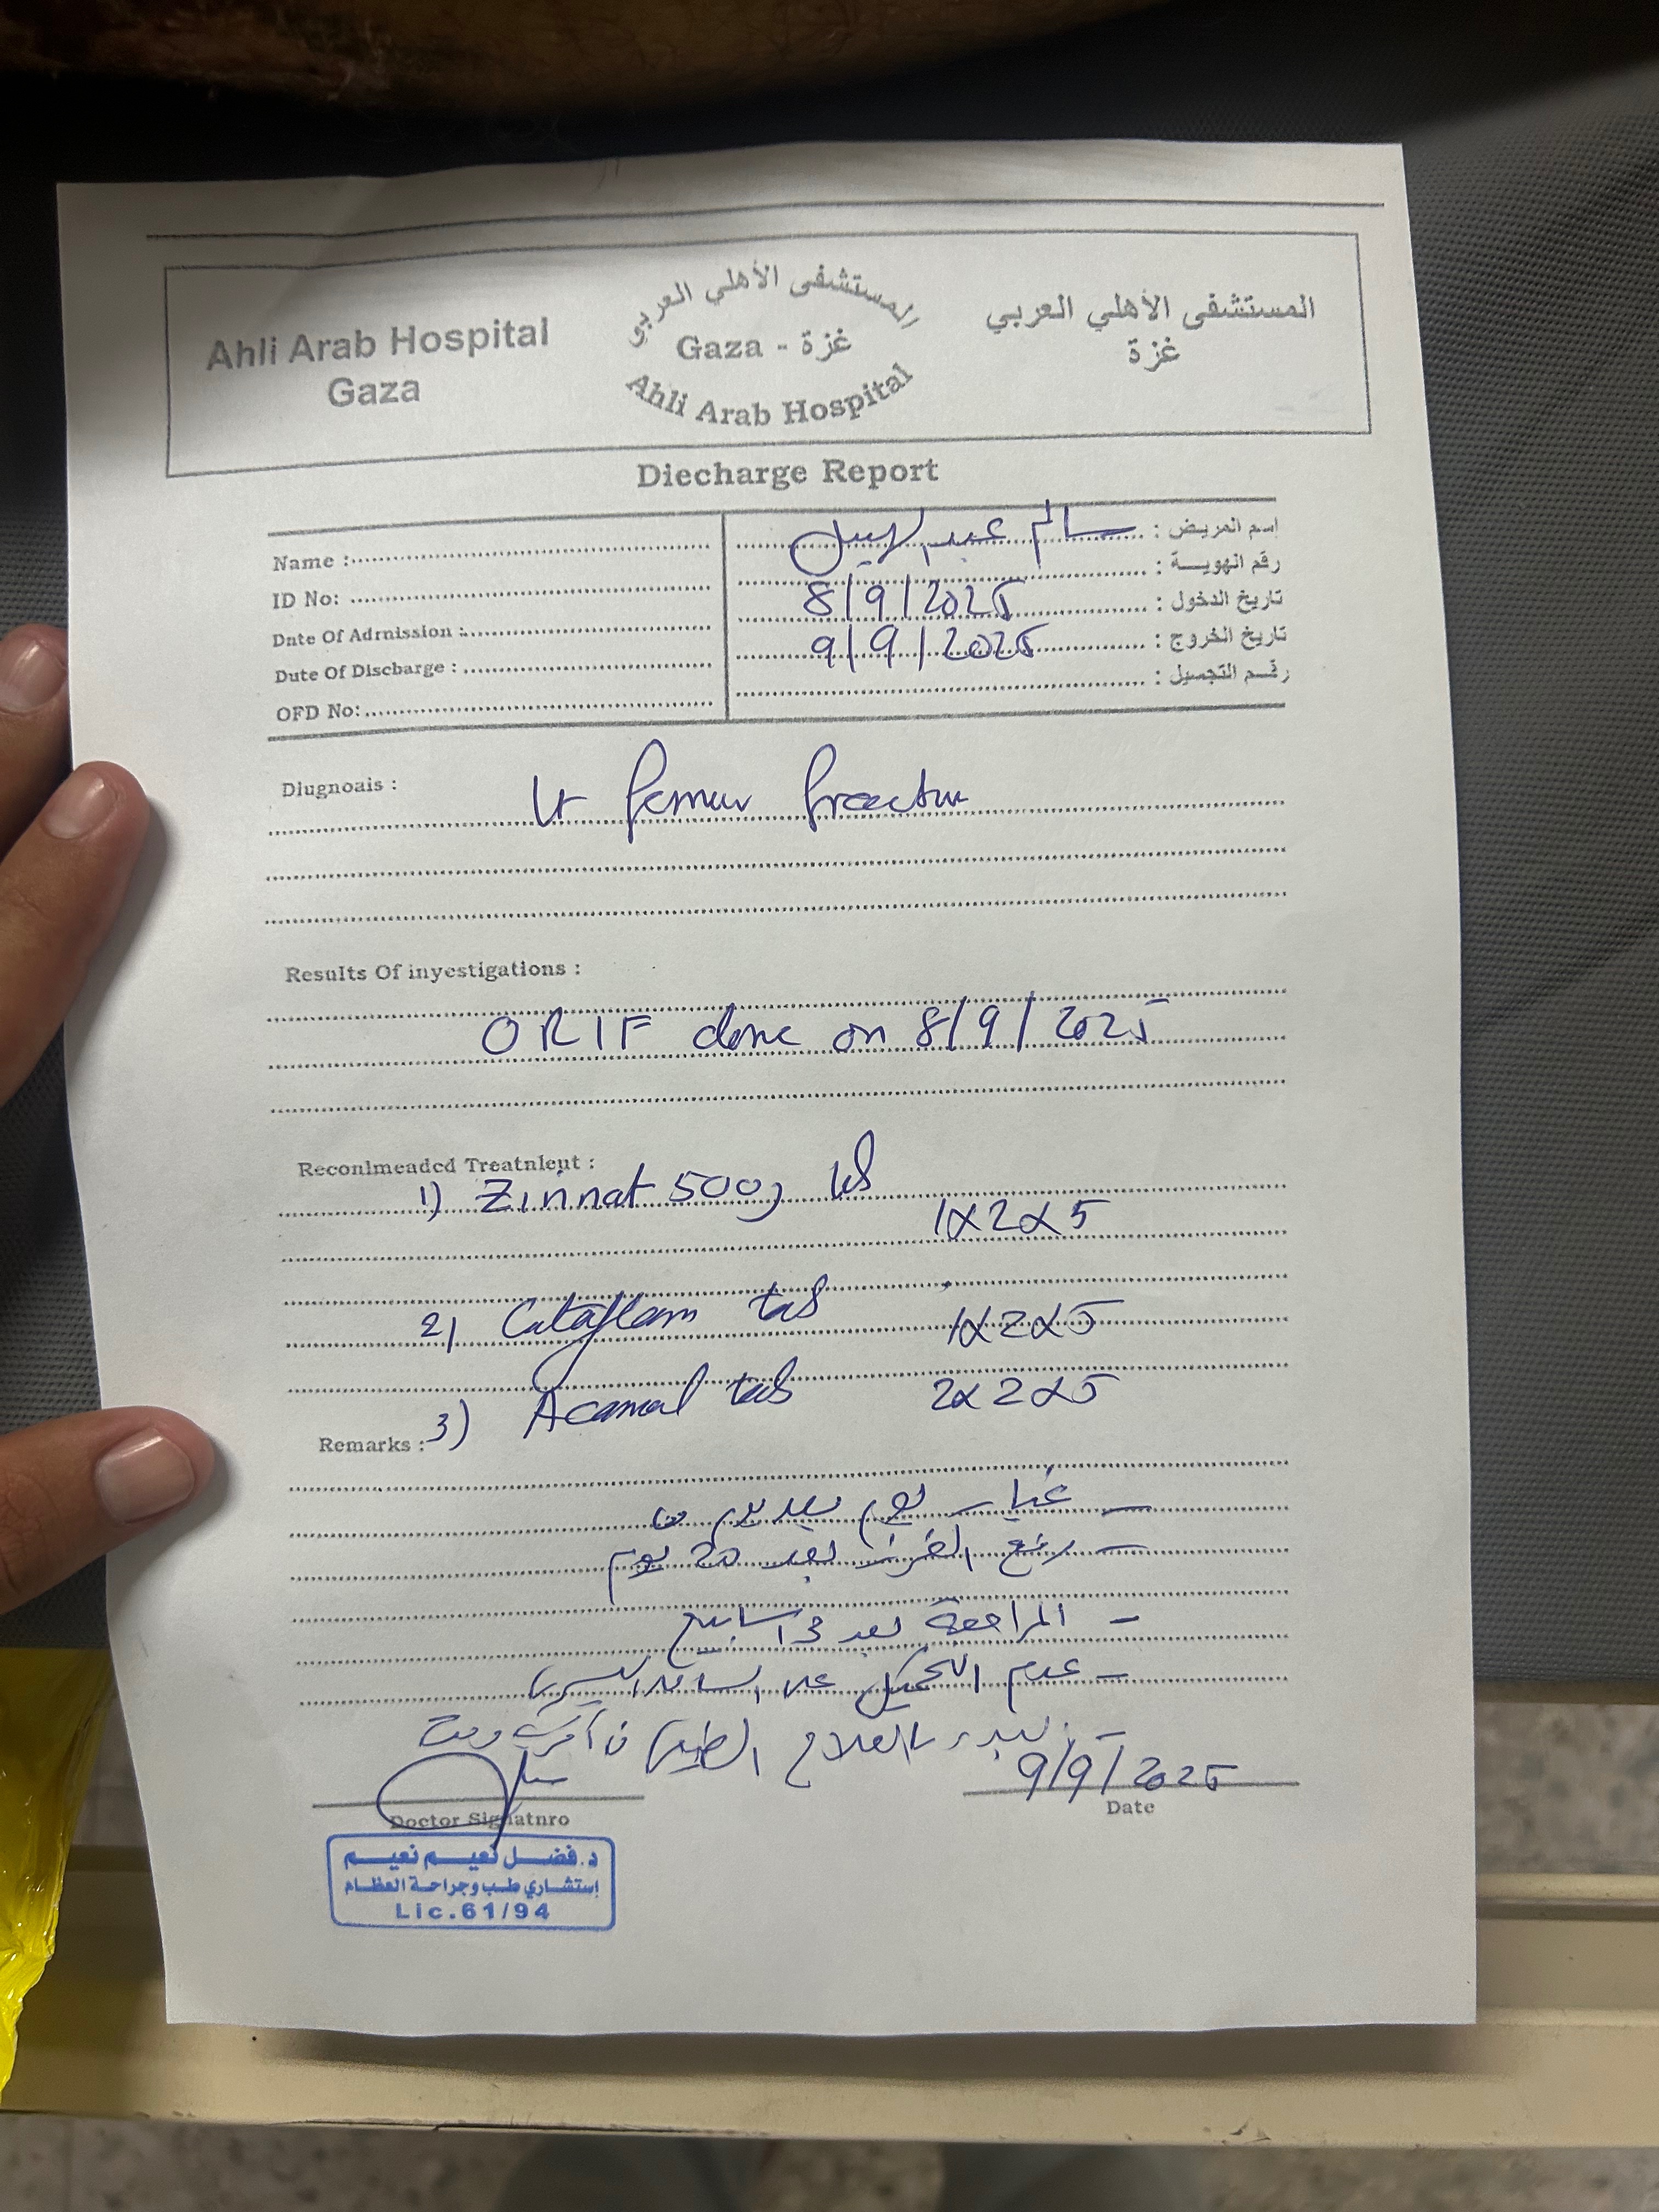 Ahli Arab Hospital
Gaza
المستشفى الأهلي العربي
غزة - Gaza
Ahli Arab Hospital
المستشفى الأهلي العربي
غزة
Diecharge Report
Name :
ID No:
Date Of Adrnission :
Dute Of Discharge :
OFD No:
إسم المريض : سالم عبد
رقم الهوية :
تاريخ الدخول : 8/9/2025
تاريخ الخروج : 9/9/2025
رقم التجسيل :
Diugnoais :
Lt femur fracture
Results Of inyestigations :
ORIF done on 8/9/2025
Reconlmeadcd Treatnlent :
1) Zinnat 500g tab
1x2x5
2) Cataflam tab 1x2x5
3) Acamol tab 2x2x5
Remarks :
- غيار يوم بعد يوم
- رفع الغرز بعد 20 يوم
- المراجعة بعد 3 اسابيع
- عدم التحميل على الساق اليسرى
- البدء بالعلاج الطبيعي
9/9/2025
Doctor Signatnro
Date
د. فضل نعيم نعيم
إستشاري طب وجراحة العظام
Lic.61/94